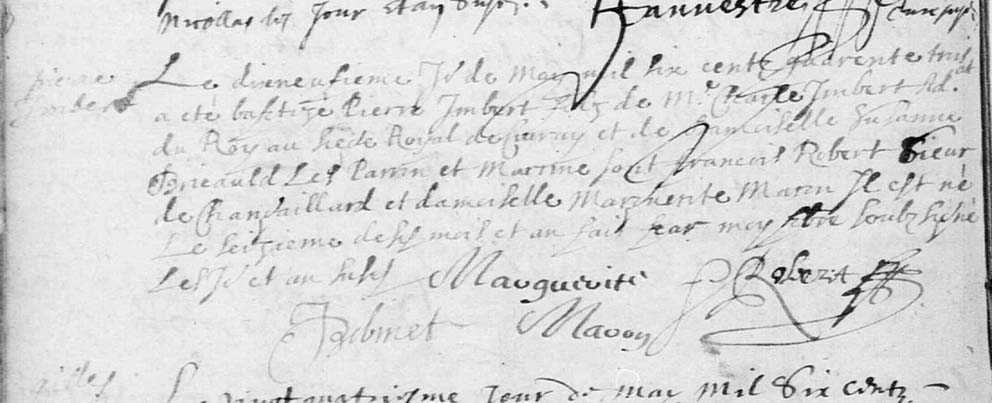 Nicollas les jour et an susd.
Pierre
Imbert
Le dixneufieme Jr de May mil six centz quarente trois
a eté baptizé Pierre Imbert filz de Mr. Charle Imbert Ad.at
du Roy au siede Royal de et de damoiselle Susanne
Brieauld Les Parrin et Marrine sont francois Robert Sieur
de Chansaillard et damoiselle Margherite Maron Il est né
Le seizieme desd mois et an fait par moy soubz signé
Les Jr et an susd Marguerite Robert
Maron
gilles
Le vingt quatriesme Jour de May mil six centz